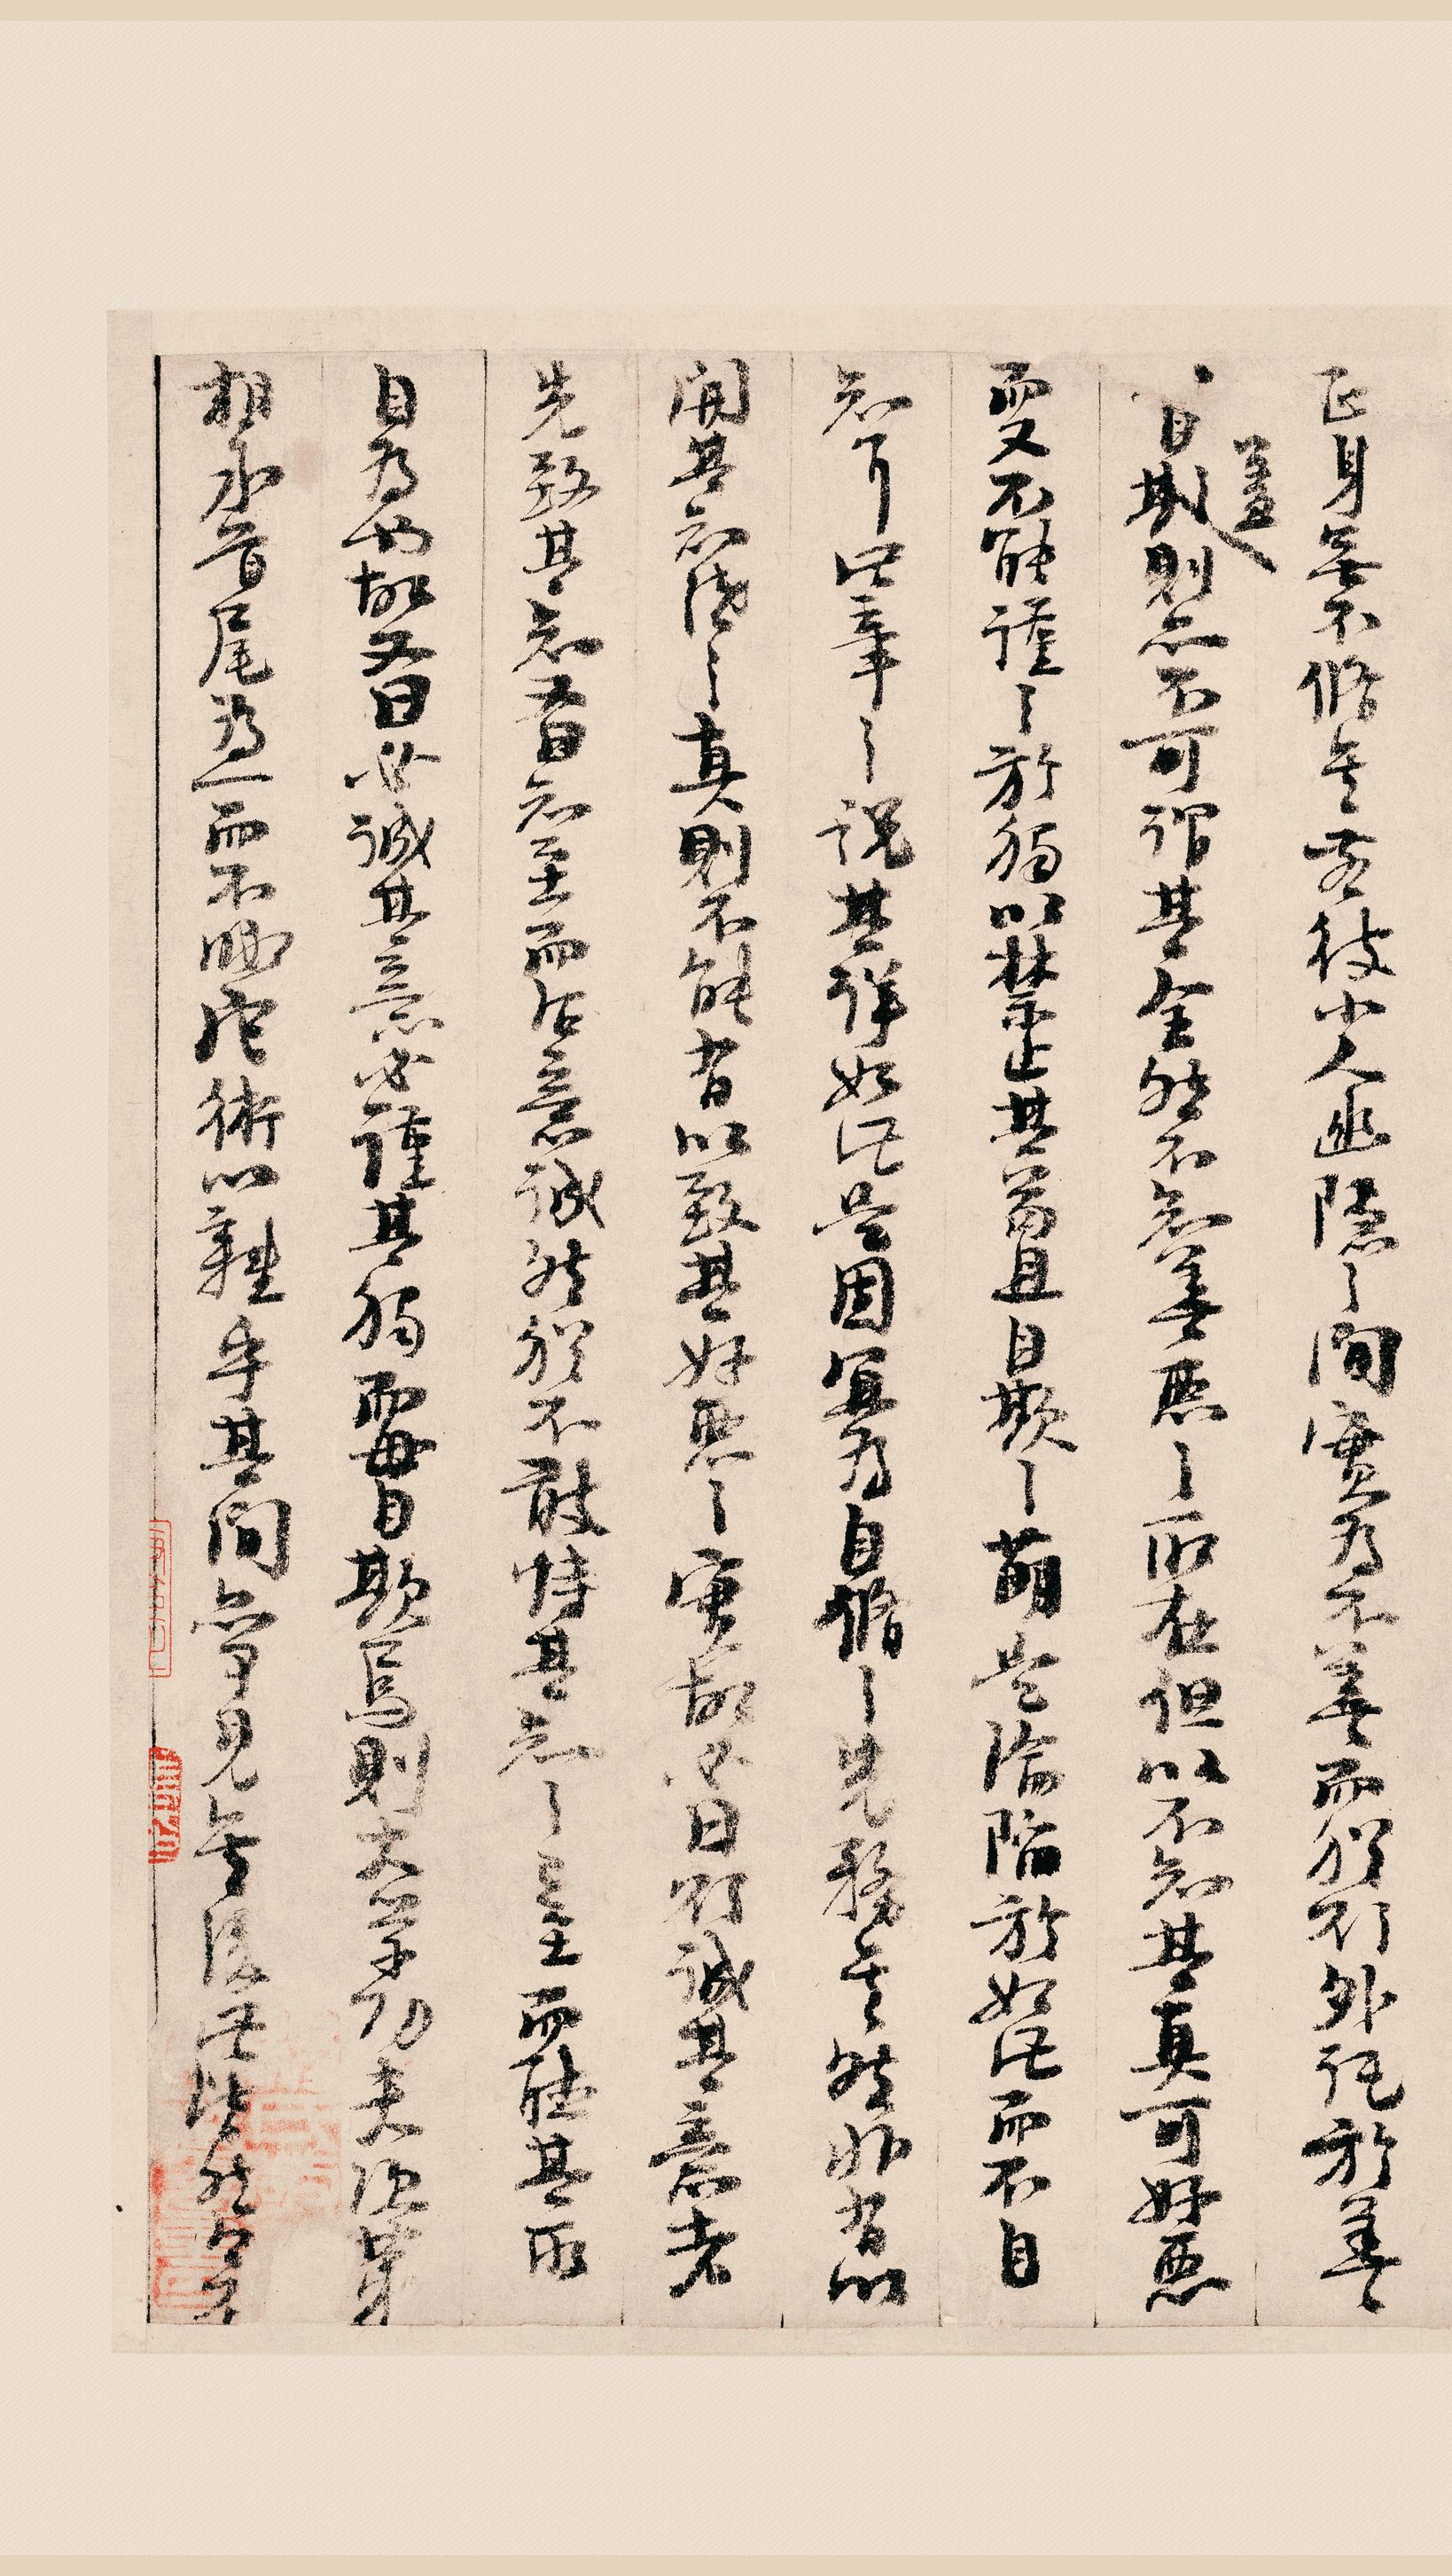 正身無不脩矣若彼小人幽隱之間實為不善而猶欲外託於善
以自欺則亦不可謂其全然不知善惡之所在但以不知其真可好惡
蓋
而又不能謹之於獨以禁止其苟且自欺之萌是淪陷於如此而不自
知耳此章之說其詳如此是固宜為自脩之先務矣然非有以
開其知識之真則不能有以致其好惡之實故必曰欲誠其意者
先致其知又曰知至而后意誠然猶不敢恃其知之已至而聽其所
自為也故又曰必誠其意必謹其獨而毋自欺焉則大學功夫次第
相承首尾為一而不假他術以雜乎其間亦可見矣後此皆然今不